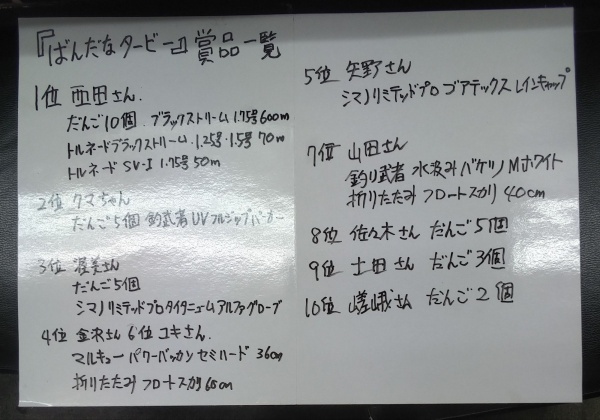 『ばんだなタービー』賞品一覧
1位 西田さん.
だんご10個.ブラックストリーム 1.75号600m
トルネードブラックストリーム・1.25号・1.5号 70m
トルネード SV-I 1.75号 50m
2位 クマちゃん
だんご5個 釣武者UVフルジップパーカー
3位 渥美さん
だんご5個
シマノリミテッドプロタイタニュームアルファグローブ
4位 金沢さん 6位 ユキさん.
マルキュー パワーバッカン セミハード 36cm
折りたたみ フロートスカリ 60cm
5位 矢野さん
シマノリミテッドプロ ゴアテックス レインキャップ
7位 山田さん
釣り武者 水汲みバケツ Mホワイト
折りたたみ フロートスカリ 40cm
8位 佐々木さん だんご5個
9位 土田さん だんご3個
10位 嵯峨さん だんご2個